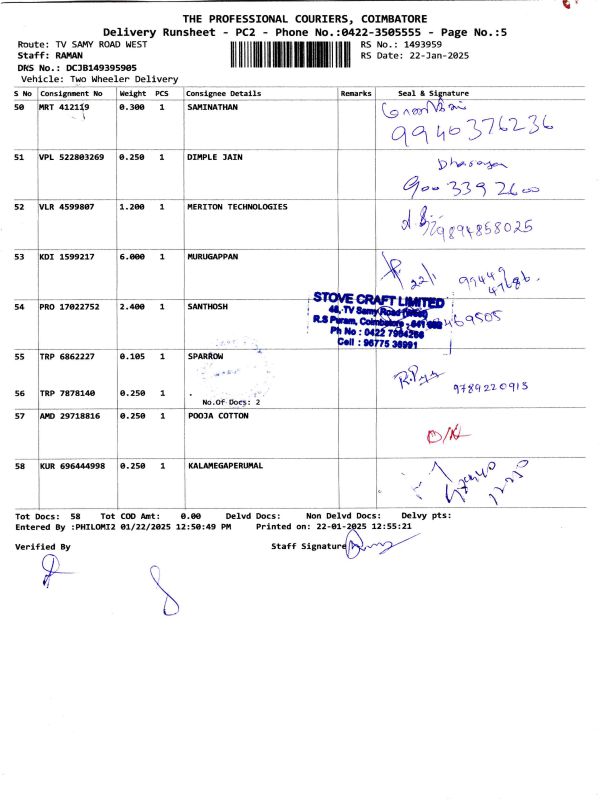 THE PROFESSIONAL COURIERS, COIMBATORE
Delivery Runsheet - PC2 - Phone No.:0422-3505555 - Page No.:5
Route: TV SAMY ROAD WEST RS No.: 1493959
Staff: RAMAN RS Date: 22-Jan-2025
DRS No.: DCJB149395905
Vehicle: Two Wheeler Delivery
S No Consignment No Weight PCS Consignee Details Remarks Seal & Signature
50 MRT 412119 0.300 1 SAMINATHAN
9940376236
51 VPL 522803269 0.250 1 DIMPLE JAIN
900 339 2600
52 VLR 4599807 1.200 1 MERITON TECHNOLOGIES
9894858025
53 KDI 1599217 6.000 1 MURUGAPPAN
22/1 99449
47686.
54 PRO 17022752 2.400 1 SANTHOSH
STOVE CRAFT LIMITED
48, TV Samy Road (West)
R.S Puram, Coimbatore - 641 002
Ph No : 0422
Cell : 96775 36991
469505
55 TRP 6862227 0.105 1 SPARROW
56 TRP 7878140 0.250 1 .
No.Of Docs: 2
9789220913
57 AMD 29718816 0.250 1 POOJA COTTON
58 KUR 696444998 0.250 1 KALAMEGAPERUMAL
Tot Docs: 58 Tot COD Amt: 0.00 Delvd Docs: Non Delvd Docs: Delvy pts:
Entered By :PHILOMI2 01/22/2025 12:50:49 PM Printed on: 22-01-2025 12:55:21
Verified By Staff Signature